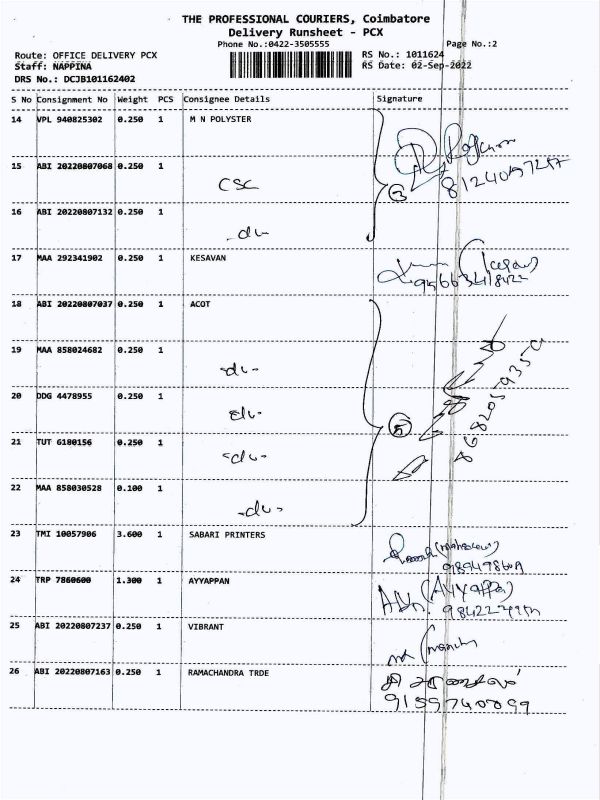 THE PROFESSIONAL COURIERS, Coimbatore
Delivery Runsheet - PCX
Phone No.:0422-3505555
Page No.:2
Route: OFFICE DELIVERY PCX
RS No.: 1011624
Staff: NAPPINA
RS Date: 02-Sep-2022
DRS No.: DCJB101162402
S No Consignment No Weight PCS Consignee Details Signature
14 VPL 940825302 0.250 1 M N POLYSTER
15 ABI 20220807068 0.250 1
CSC
3
16 ABI 20220807132 0.250 1
-du-
17 MAA 292341902 0.250 1 KESAVAN
18 ABI 20220807037 0.250 1 ACOT
19 MAA 858024682 0.250 1
-du-
20 DDG 4478955 0.250 1
-du-
5
21 TUT 6180156 0.250 1
-du-
22 MAA 858030528 0.100 1
-du-
23 TMI 10057906 3.600 1 SABARI PRINTERS
24 TRP 7860600 1.300 1 AYYAPPAN
(Ayyappa)
25 ABI 20220807237 0.250 1 VIBRANT
26 ABI 20220807163 0.250 1 RAMACHANDRA TRDE
9159740099